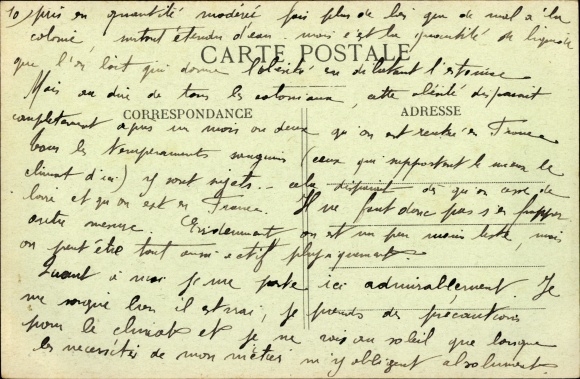 10) pris en quantité modérée fait plus de bien que de mal à la
colonie, surtout étendu d'eau. mais c'est la quantité de liquide
CARTE POSTALE
que l'on boit qui donne l'obésité en dilatant l'estomac
Mais au dire de tous les coloniaux, cette obésité disparait
CORRESPONDANCE
ADRESSE
complètement après un mois ou deux qu'on est rentré en France
Tous les tempéraments sanguins (ceux qui supportent le mieux le
climat d'ici) y sont sujets. - cela disparait dès qu'on cesse de
boire et qu'on est en France. Il ne faut donc pas s'en frapper
outre mesure. Evidemment on est un peu moins leste, mais
on peut être tout aussi actif physiquement
Quant à moi je me porte ici admirablement. Je
me soigne bien il est vrai, je prends des précautions
pour le climat et je ne vais au soleil que lorsque
les necessités de mon métier m'y obligent absolument